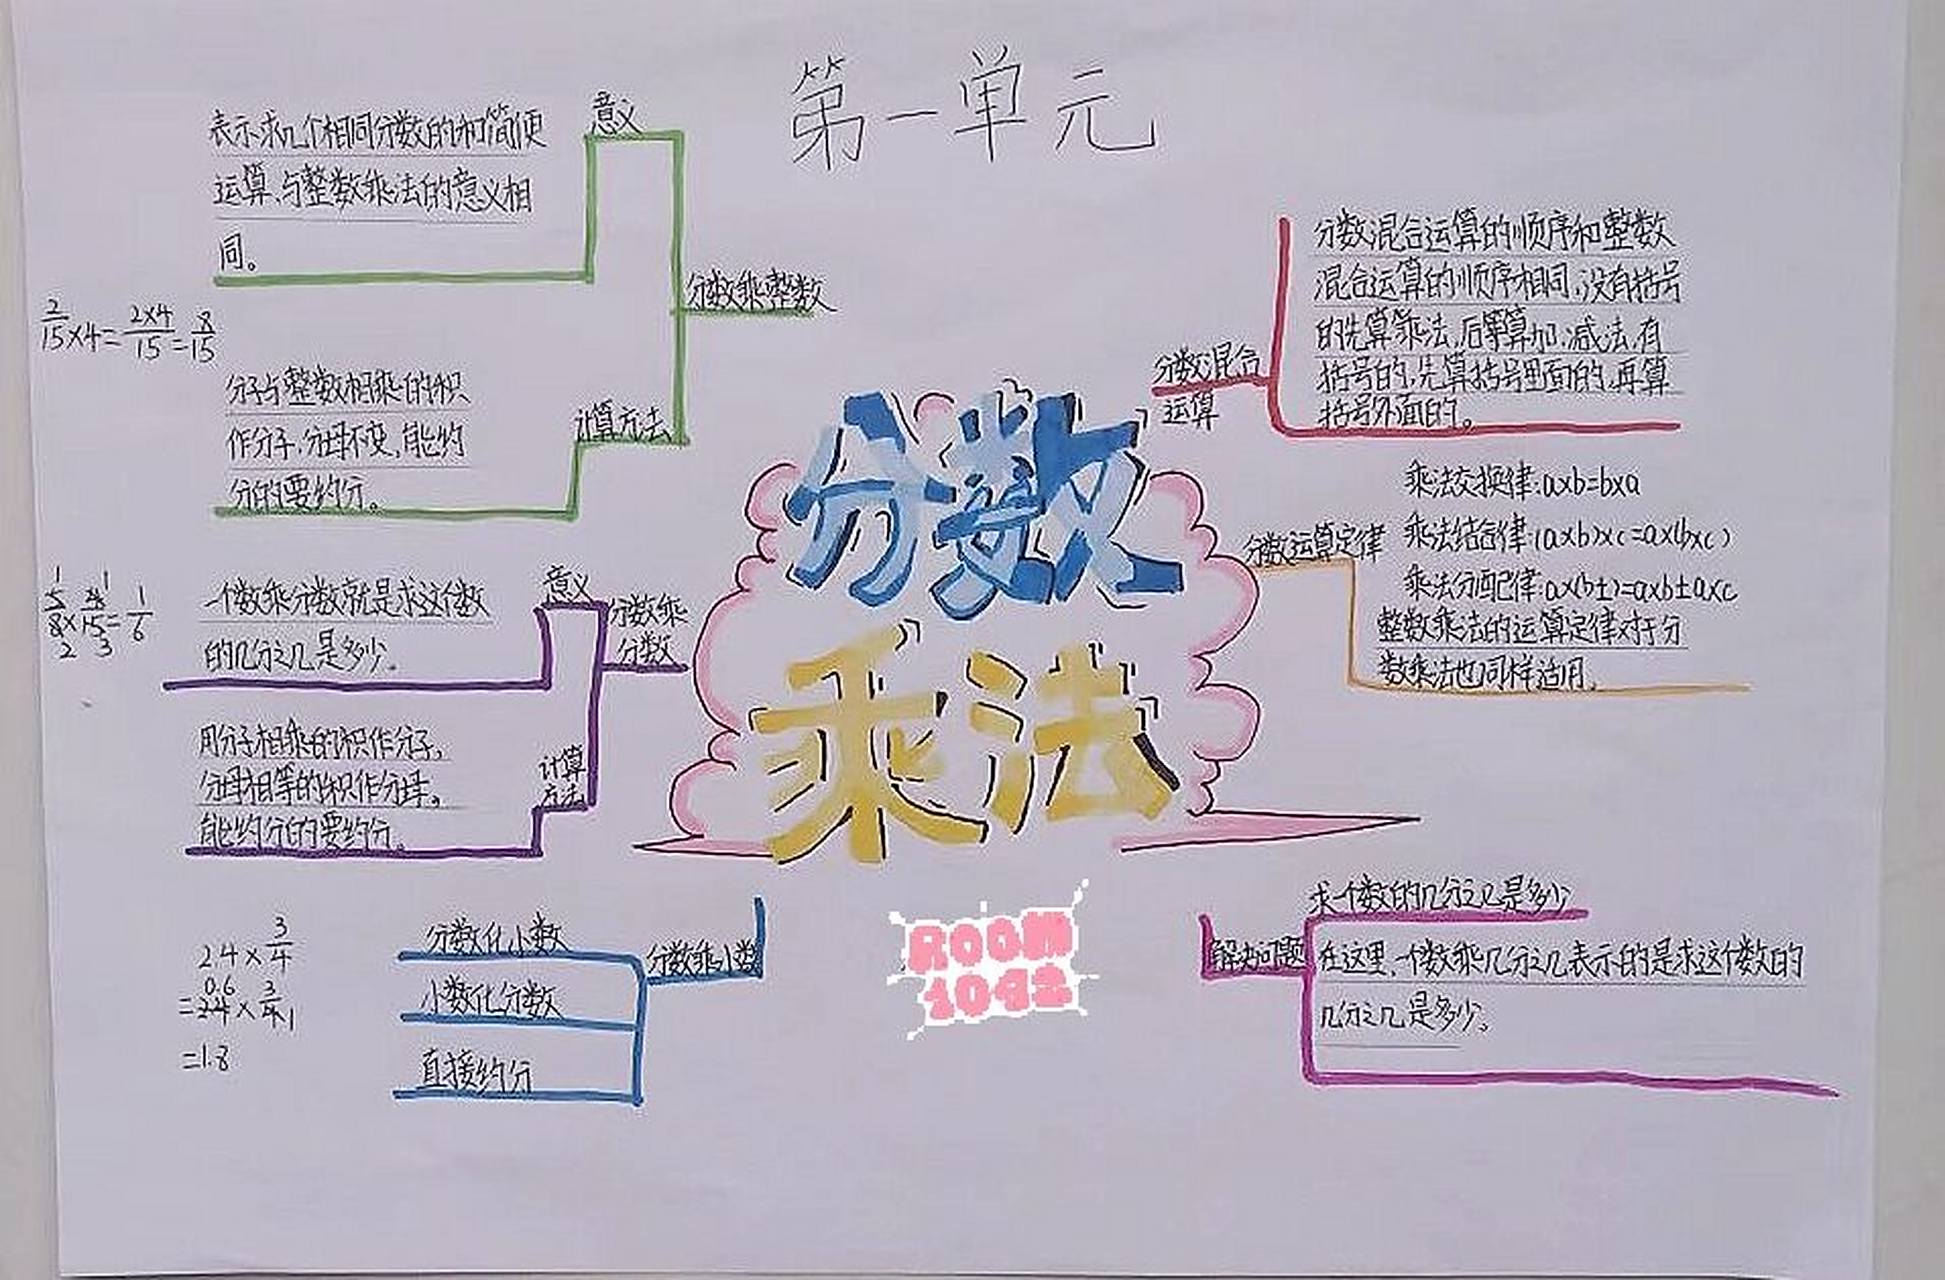 第一单元
意义
表示求几个相同分数的和简便
运算、与整数乘法的意义相
同。
分数乘整数
2/15×4=2×4/15=8/15
计算方法
分子与整数相乘的积
作分子,分母不变,能约
分的要约分。
意义
一个数乘分数就是求这个数
的几分之几是多少。
分数乘
分数
计算
方法
用分子相乘的积作分子,
分母相等的积作分母。
能约分的要约分。
分数乘小数
分数化小数
小数化分数
直接约分
2.4×3/4
=1.8
分数
乘法
ROOM
1042
分数混合
运算
分数混合运算的顺序和整数
混合运算的顺序相同,没有括号
的先算乘法,后算加、减法,有
括号的,先算括号里面的,再算
括号外面的。
分数运算定律
乘法交换律:a×b=b×a
乘法结合律:(a×b)×c=a×(b×c)
乘法分配律:a×(b±)=a×b±a×c
整数乘法的运算定律对于分
数乘法也同样适用。
解决问题
求一个数的几分之几是多少
在这里,一个数乘几分之几表示的是求这个数的
几分之几是多少。